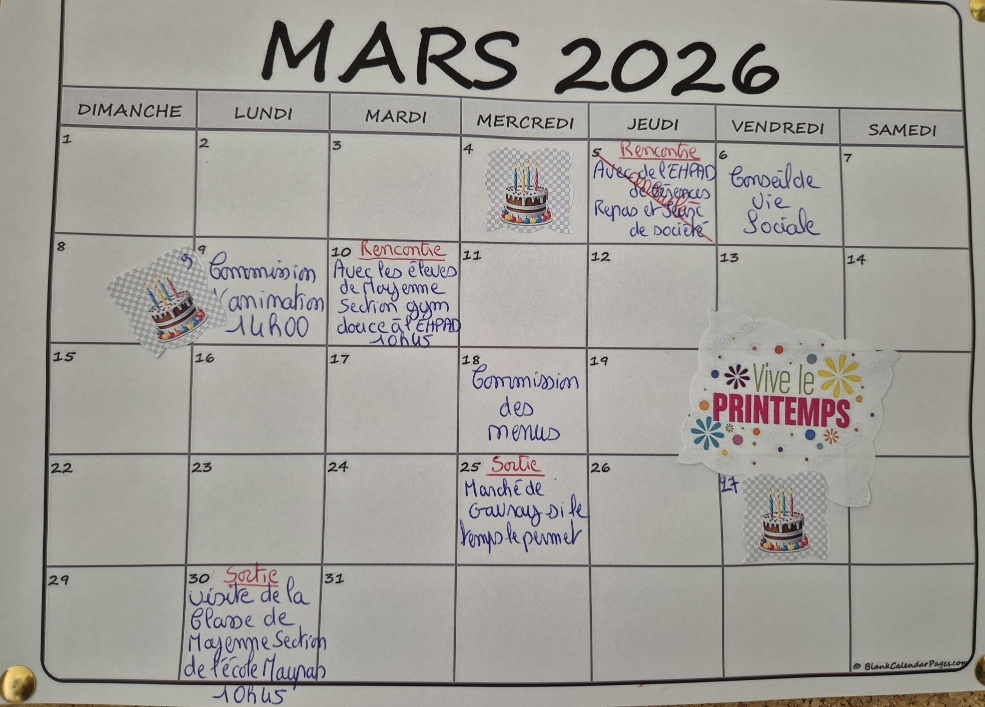 MARS 2026
DIMANCHE LUNDI MARDI MERCREDI JEUDI VENDREDI SAMEDI
1
2
3
4
5 Rencontre
Avec de l'EHPAD
de
Repas et
de société
6
Conseil de
Vie
Sociale
7
8
9
9
Commission
l'animation
14h00
10 Rencontre
Avec les élèves
de Moyenne
Section gym
douce à l'EHPAD
10h45
11
12
13
14
15
16
17
18
Commission
des
menus
19
Vive le
PRINTEMPS
22
23
24
25 Sortie
Marché de
Gavray si le
temps le permet
26
27
29
30 Sortie
visite de la
Classe de
Moyenne Section
de l'école
10h45
31
© BlankCalendarPages.com